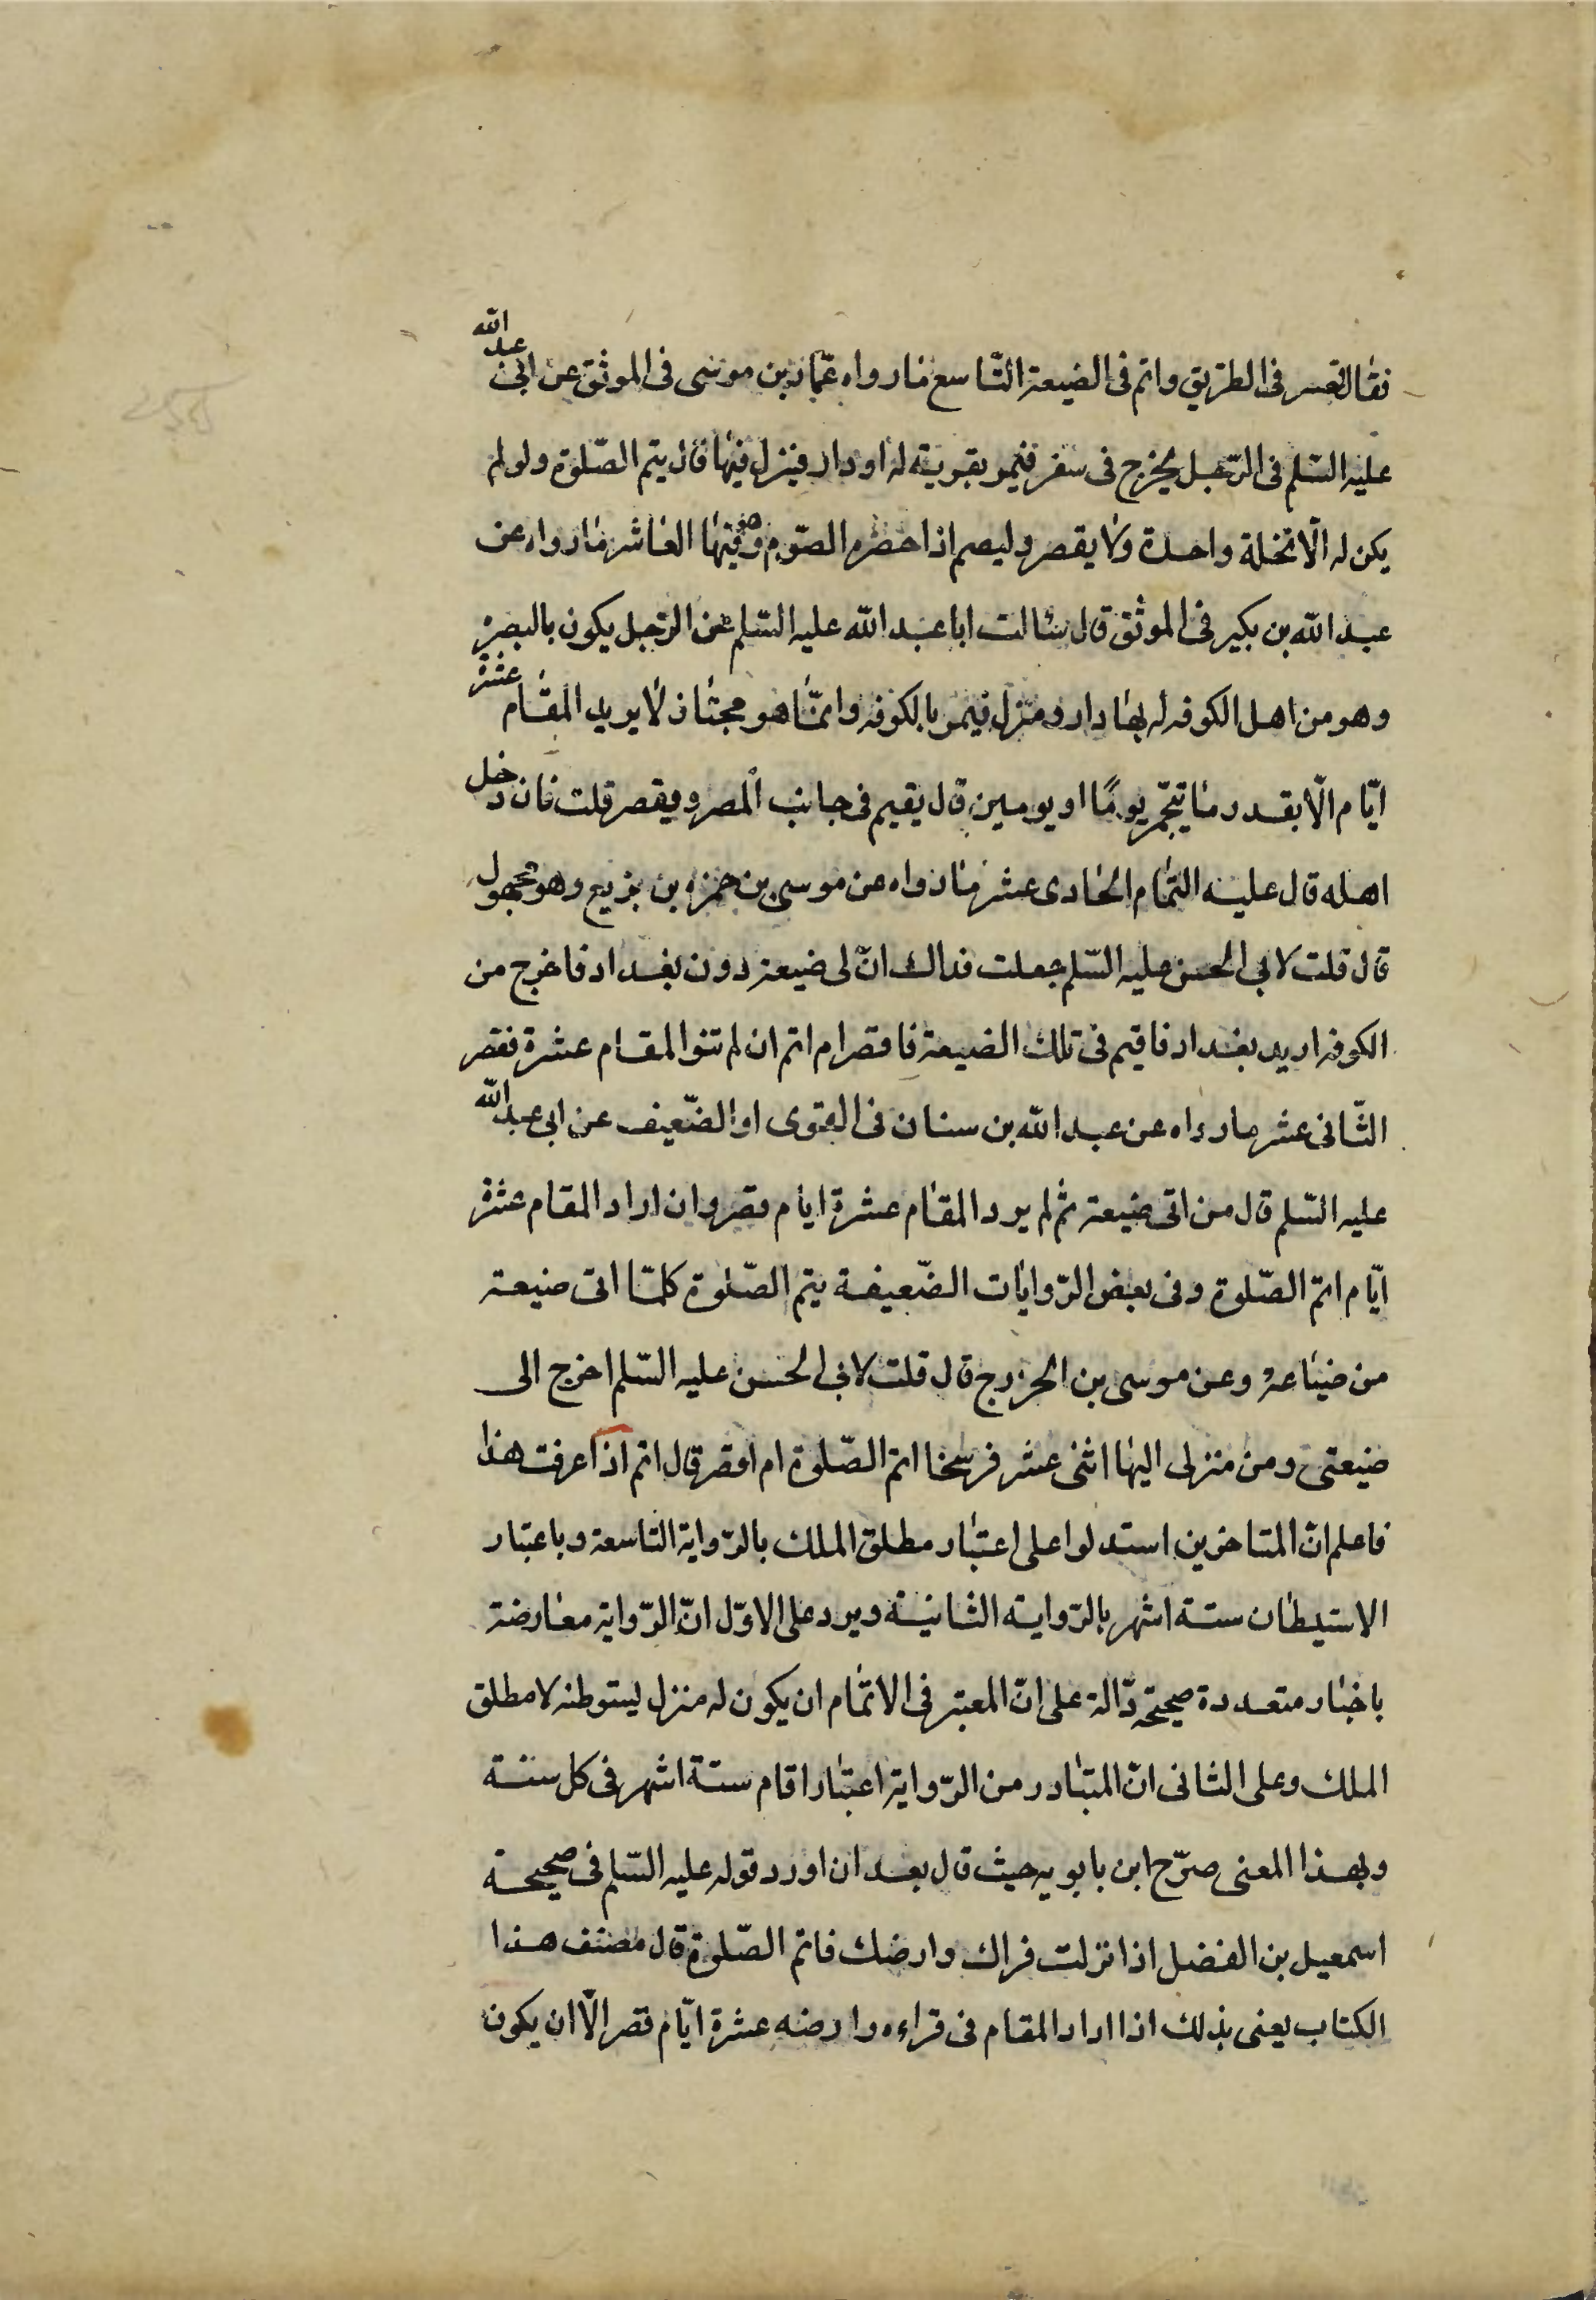 فقال اقصر فى الطريق واتم فى الضيعة التاسع ما رواه عمّار بن موسى فى الموثق عن ابى عبد الله
عليه السّلم فى الرّجل يخرج فى سفر فيمر بقرية له او دار فينزل فيها قال يتم الصّلوة ولو لم
يكن له الّا نخلة واحدة ولا يقصر وليصم اذا حضره الصّوم وهو فيها العاشر ما رواه عن
عبد الله بن بكير فى الموثق قال سالت ابا عبد الله عليه السّلم عن الرّجل يكون بالبصرة
وهو من اهل الكوفه له بها دار ومنزل فيمر بالكوفه وانمّا هو مجتاز لا يريد المقام عشرة
ايّام الّا بقدر ما يتجهّز يومًا او يومين قال يقيم فى جانب المصر ويقصر قلت فان دخل
اهله قال عليه التّمام الحادى عشر ما رواه عن موسى بن حمزه بن بزيع وهو مجهول
قال قلت لابى الحسن عليه السّلم جعلت فداك انّ لى ضيعة دون بغداد فاخرج من
الكوفه اريد بغداد فاقيم فى تلك الضيعة فاقصر ام اتم ان لم تنو المقام عشرة فقصر
الثّانى عشر ما رواه عن عبد الله بن سنان فى القوى او الضّعيف عن ابى عبد الله
عليه السّلم قال من اتى ضيعته ثم لم يرد المقام عشرة ايام قصر وان اراد المقام عشرة
ايّام اتمّ الصّلوة وفى بعض الرّوايات الضّعيفة يتم الصّلوة كلمّا اتى ضيعة
من ضياعه وعن موسى بن الخزرج قال قلت لابى الحسن عليه السّلم اخرج الى
ضيعتى ومن منزلى اليها اثنى عشر فرسخا اتم الصّلوة ام اقصر قال اتم اذا عرفت هذا
فاعلم انّ المتاخرين استدلوا على اعتبار مطلق الملك بالرّواية التاسعة وباعتبار
الاستيطان ستة اشهر بالرّواية الثانية ويرد على الاوّل انّ الرّواية معارضة
باخبار متعددة صحيحة دّالة على انّ المعتبر فى الاتمام ان يكون له منزل يستوطنه لا مطلق
الملك وعلى الثانى انّ المتبادر من الرّواية اعتبار اقام ستة اشهر فى كل سنة
وبهذا المعنى صرّح ابن بابويه حيث قال بعد ان اورد قوله عليه السّلم فى صحيحة
اسمعيل بن الفضل اذا نزلت قراك وارضك فاتم الصّلوة قال مصنف هذا
الكتاب يعنى بذلك اذا اراد المقام فى قراءه وارضه عشرة ايّام قصر الّا ان يكون